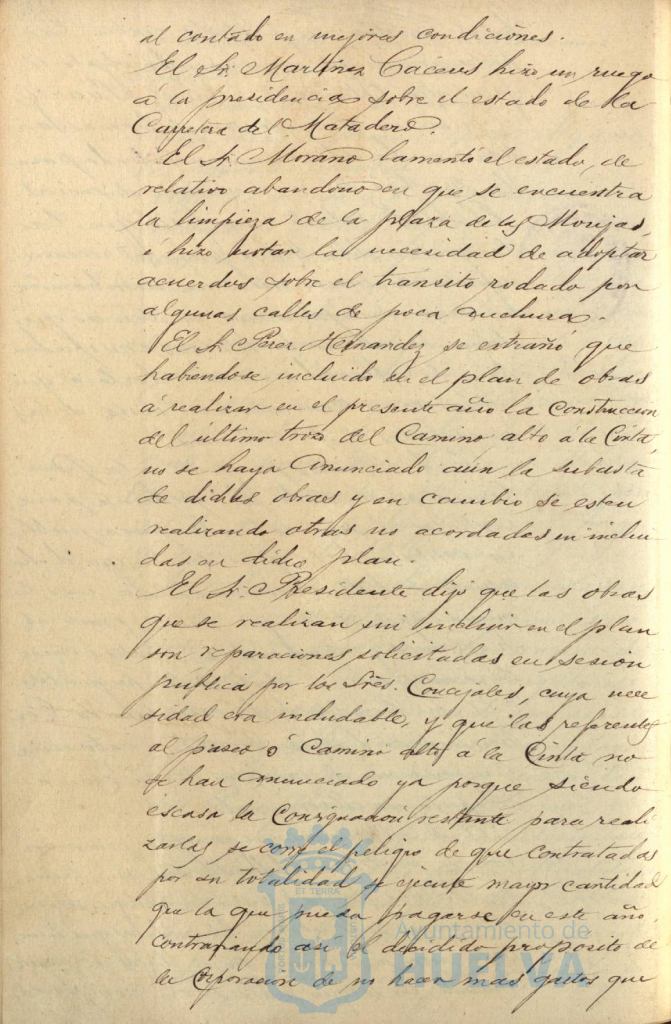 al contado en mejores condiciones.
El Sr. Martinez Cáceres hizo un ruego
á la presidencia sobre el estado de la
Carretera del Matadero.
El Sr. Morano lamentó el estado, de
relativo abandono en que se encuentra
la limpieza de la plaza de las Monjas,
é hizo notar la necesidad de adoptar
acuerdos sobre el transito rodado por
algunas calles de poca anchura.
El Sr. Perez Hernandez se extrañó que
habiendose incluido en el plan de obras
á realizar en el presente año la construccion
del último trozo del Camino alto á la Cinta,
no se haya anunciado aun la subasta
de dichas obras y en cambio se esten
realizando otras no acordadas ni inclui
das en dicho plan.
El Sr. Presidente dijo que las obras
que se realizan sin incluir en el plan
son reparaciones solicitadas en sesión
pública por los Sres. Concejales, cuya nece
sidad era indudable, y que las referentes
al paseo ó Camino alto á la Cinta no
se han anunciado ya porque siendo
escasa la consignación restante para reali
zarlas se corre el peligro de que contratadas
por su totalidad se ejecute mayor cantidad
que la que pueda pagarse en este año,
contrariando asi el decidido proposito de
la Corporacion de no hacer mas gastos que
Ayuntamiento de
HUELVA